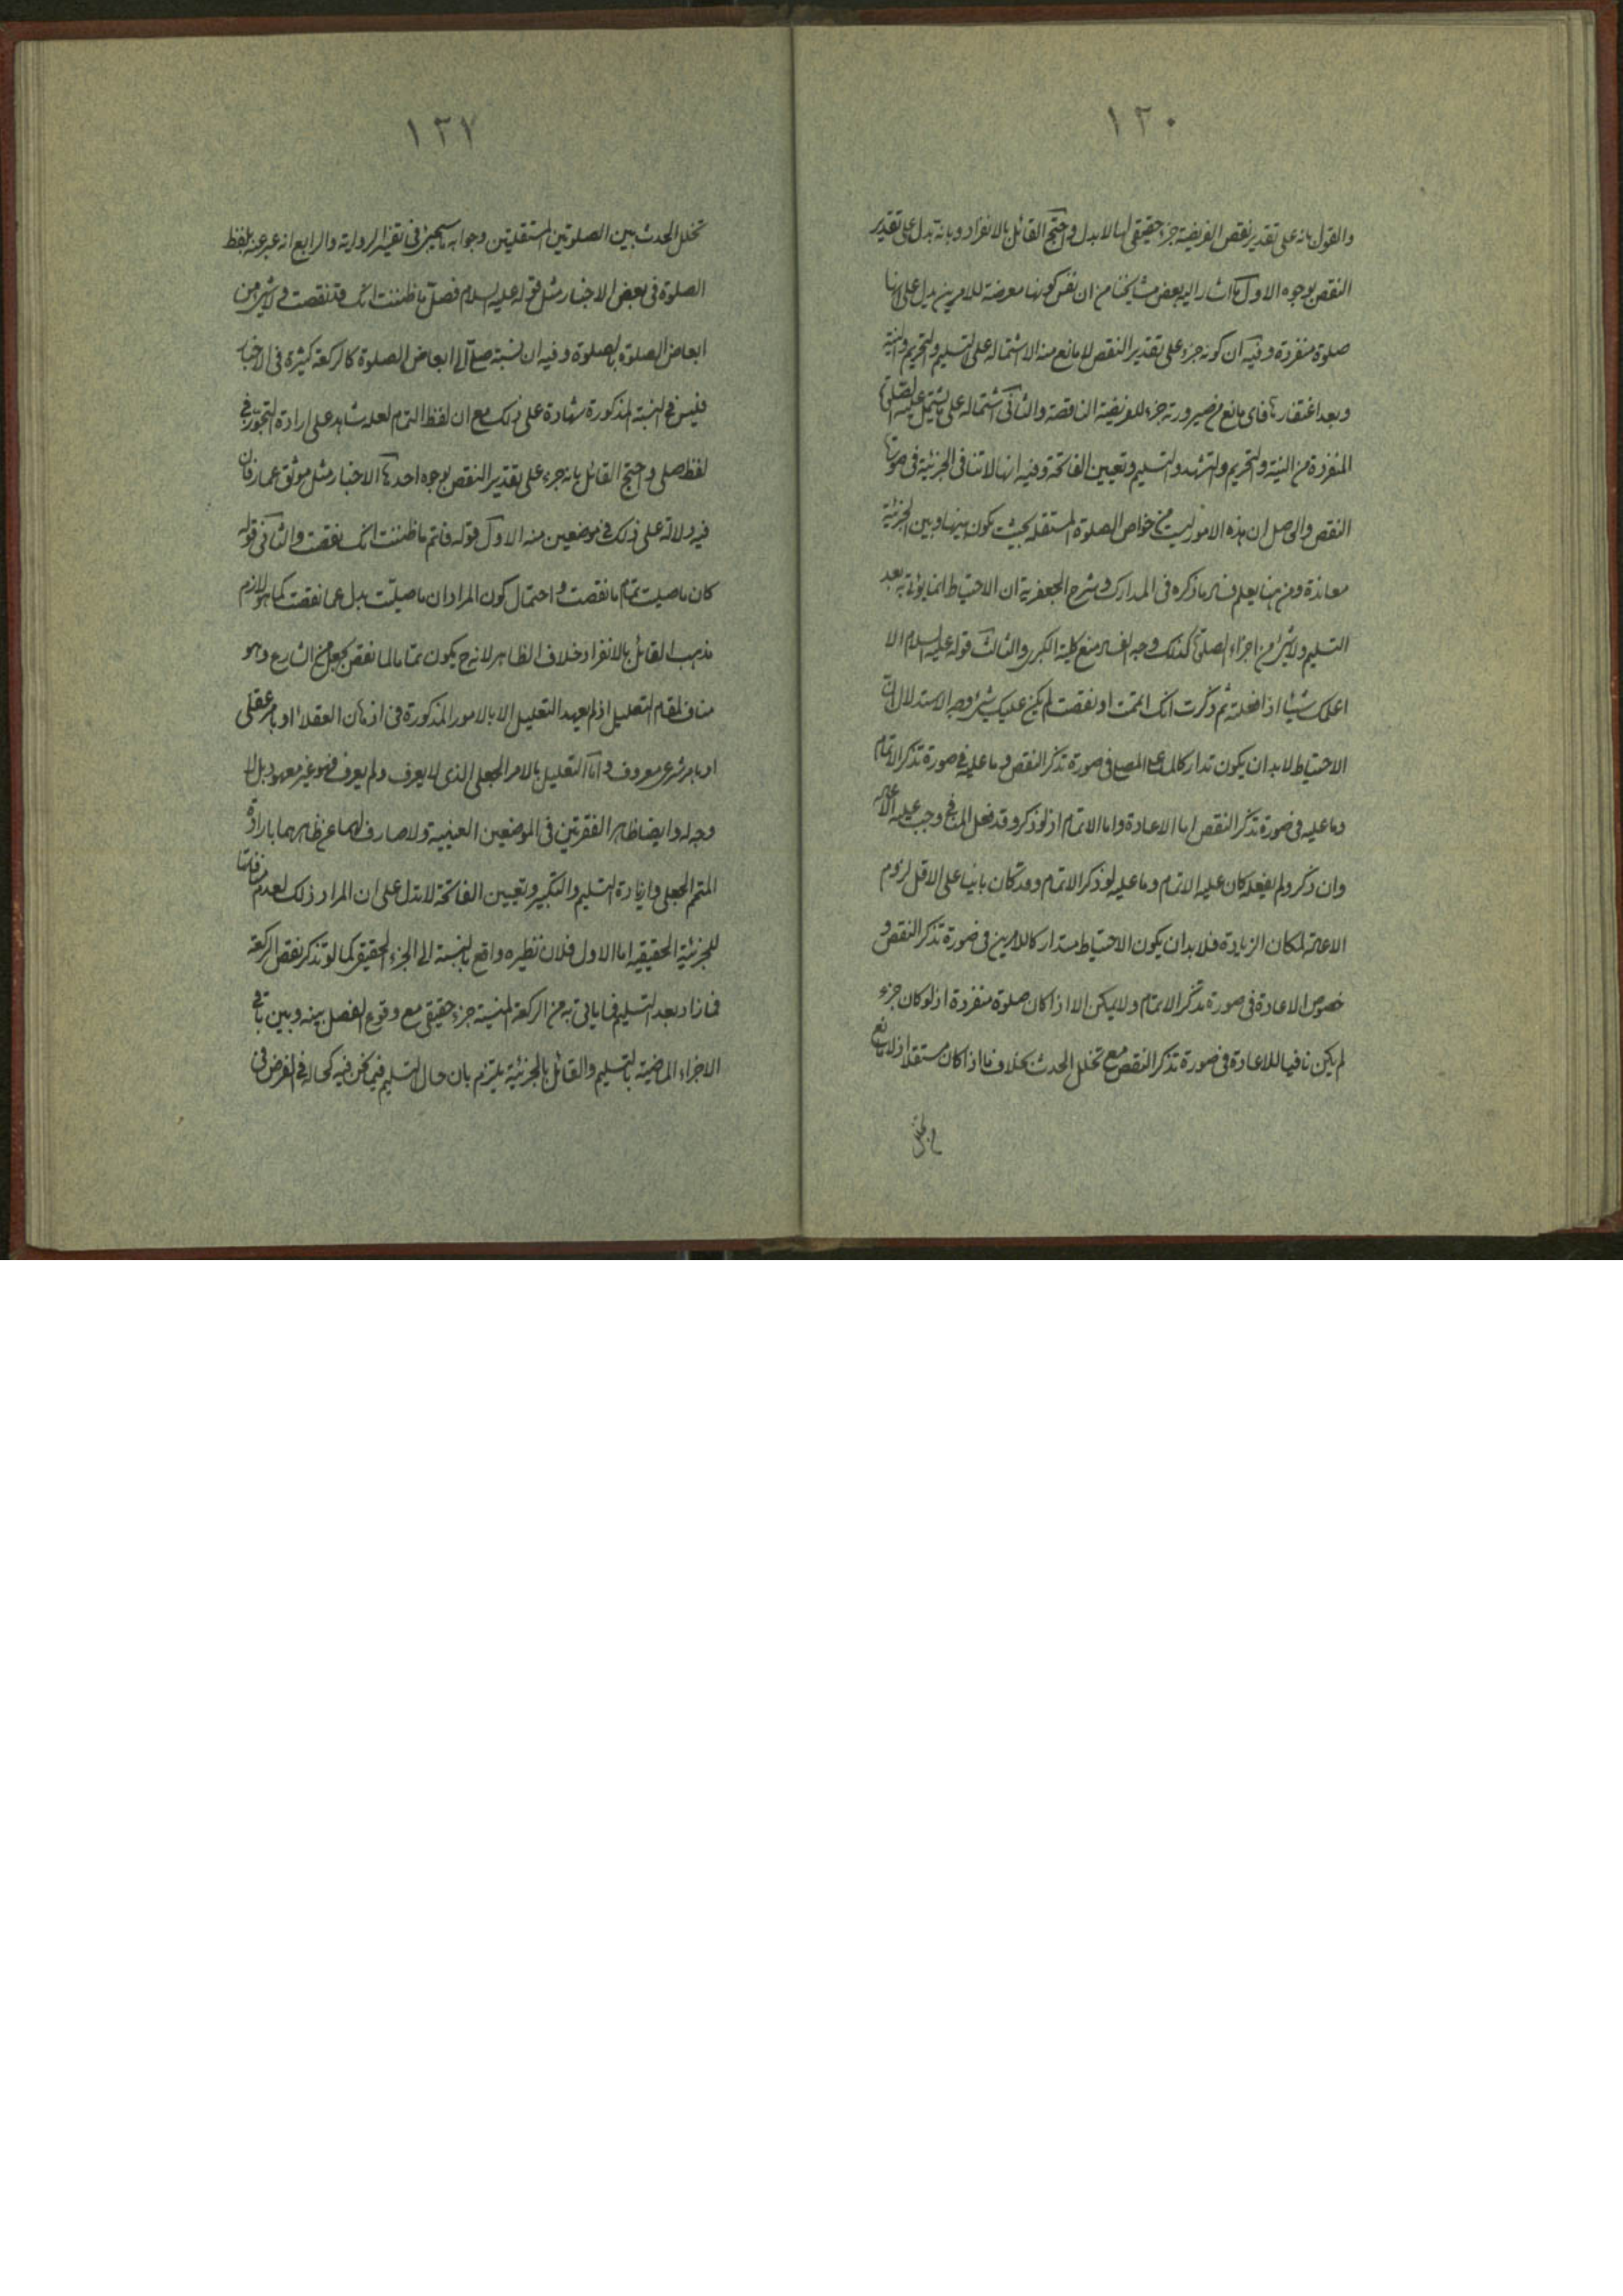 ١٢٠
والقول بانه على تقدير نقص الفريضة جزء حقيقى لها لا بدل واحتج القائل بالانفراد وبانه بدل على تقدير
النقص بوجوه الاول ما اشار اليه بعض مشايخنا من ان نفس كونها معرضة للامرين يدل على انها
صلوة منفردة وفيه ان كونه جزء على تقدير النقص لا مانع منه الا اشتماله على التسليم والتحريم والنية
وبعد اغتفار فاى مانع من صيرورته جزء للفريضة الناقصة والثانى اشتماله على ما يشتمل عليه الصلوة
المنفردة من النية والتحريم والتشهد والتسليم وتعيين الفاتحة وفيه انها لا تنافى الجزئية فى صورة
النقص والحاصل ان هذه الامور ليست من خواص الصلوة المستقلة بحيث يكون بينها وبين الجزئية
معاندة ومن هنا يعلم فساد ما ذكره فى المدارك وشرح الجعفرية ان الاحتياط انما يؤتى به بعد
التسليم ولا شئ من اجزاء الصلوة كذلك وجه الفساد منع كلية الكبرى والثالث قوله عليه السلام الا
اعلمك شيئا اذا فعلته ثم ذكرت انك اتممت او نقصت لم يكن عليك شئ وجه الاستدلال ان
الاحتياط لا بد ان يكون تداركا لما على المصلى فى صورة تذكر النقص وما عليه فى صورة تذكر الاتمام
وما عليه فى صورة تذكر النقص اما الاعادة واما الاتمام اذ لو ذكر وقد فعل المنافى وجب عليه الاعادة
وان ذكر ولم يفعله كان عليه الاتمام وما عليه لو ذكر الاتمام وقد كان بانيا على الاقل لزوم
الاعادة لمكان الزيادة فلا بد ان يكون الاحتياط مستداركا للامرين فى صورة تذكر النقص و
خصوص الاعادة فى صورة تذكر الاتمام ولا يمكن الا اذا كان صلوة منفردة اذ لو كان جزء
لم يكن نافيا للاعادة فى صورة تذكر النقص مع تخلل الحدث بخلاف ما اذا كان مستقلا اذ لا مانع
من تخلل
١٢٧
تخلل الحدث بين الصلوتين المستقلتين وجوابه ما سيجئ فى تفسير الرواية والرابع انه عبر عنه بلفظ
الصلوة فى بعض الاخبار مثل قوله عليه السلام فصل ما ظننت انك قد نقصت ولا شئ من
ابعاض الصلوة بصلوة وفيه ان نسبة صل الى ابعاض الصلوة كالركعة كثيرة فى الاخبار
فليس فى النسبة المذكورة شهادة على ذلك مع ان لفظ التمام لعله شاهد على ارادة التجوز فى
لفظ صلى واحتج القائل بانه جزء على تقدير النقص بوجوه احدها الاخبار مثل موثق عمار فان
فيه دلالة على ذلك فى موضعين منه الاول قوله فاتم ما ظننت انك نقصت والثانى قوله
كان ما صليت تمام ما نقصت واحتمال كون المراد ان ما صليت بدل عما نقصت كما هو لازم
مذهب القائل بالانفراد خلاف الظاهر لانه ح يكون تماما لما نقص بجعل من الشارع وهو
مناف لمقام التعليل اذ لم يعهد التعليل الا بالامور المذكورة فى اذهان العقلاء او بامر عقلى
او بامر شرعى معروف واما التعليل بالامر الجعلى الذى لا يعرف ولم يعرف فهو غير معهود بل لا
وجه له وايضا ظاهر الفقرتين فى الموضعين العينية ولا صارف لهما عن ظاهرهما بارادة
المتمم الجعلى وزيادة التسليم والتكبير وتعيين الفاتحة لا تدل على ان المراد ذلك لعدم منافاتها
للجزئية الحقيقية اما الاول فلان نظيره واقع بالنسبة الى الجزء الحقيقى كما لو تذكر نقص الركعة
فما زاد بعد التسليم فما ياتى به من الركعة المنسية جزء حقيقى مع وقوع الفصل بينه وبين باقى
الاجزاء الماضية بالتسليم والقائل بالجزئية يلتزم بان حال التسليم فيما نحن فيه كحاله فى الفرض فى